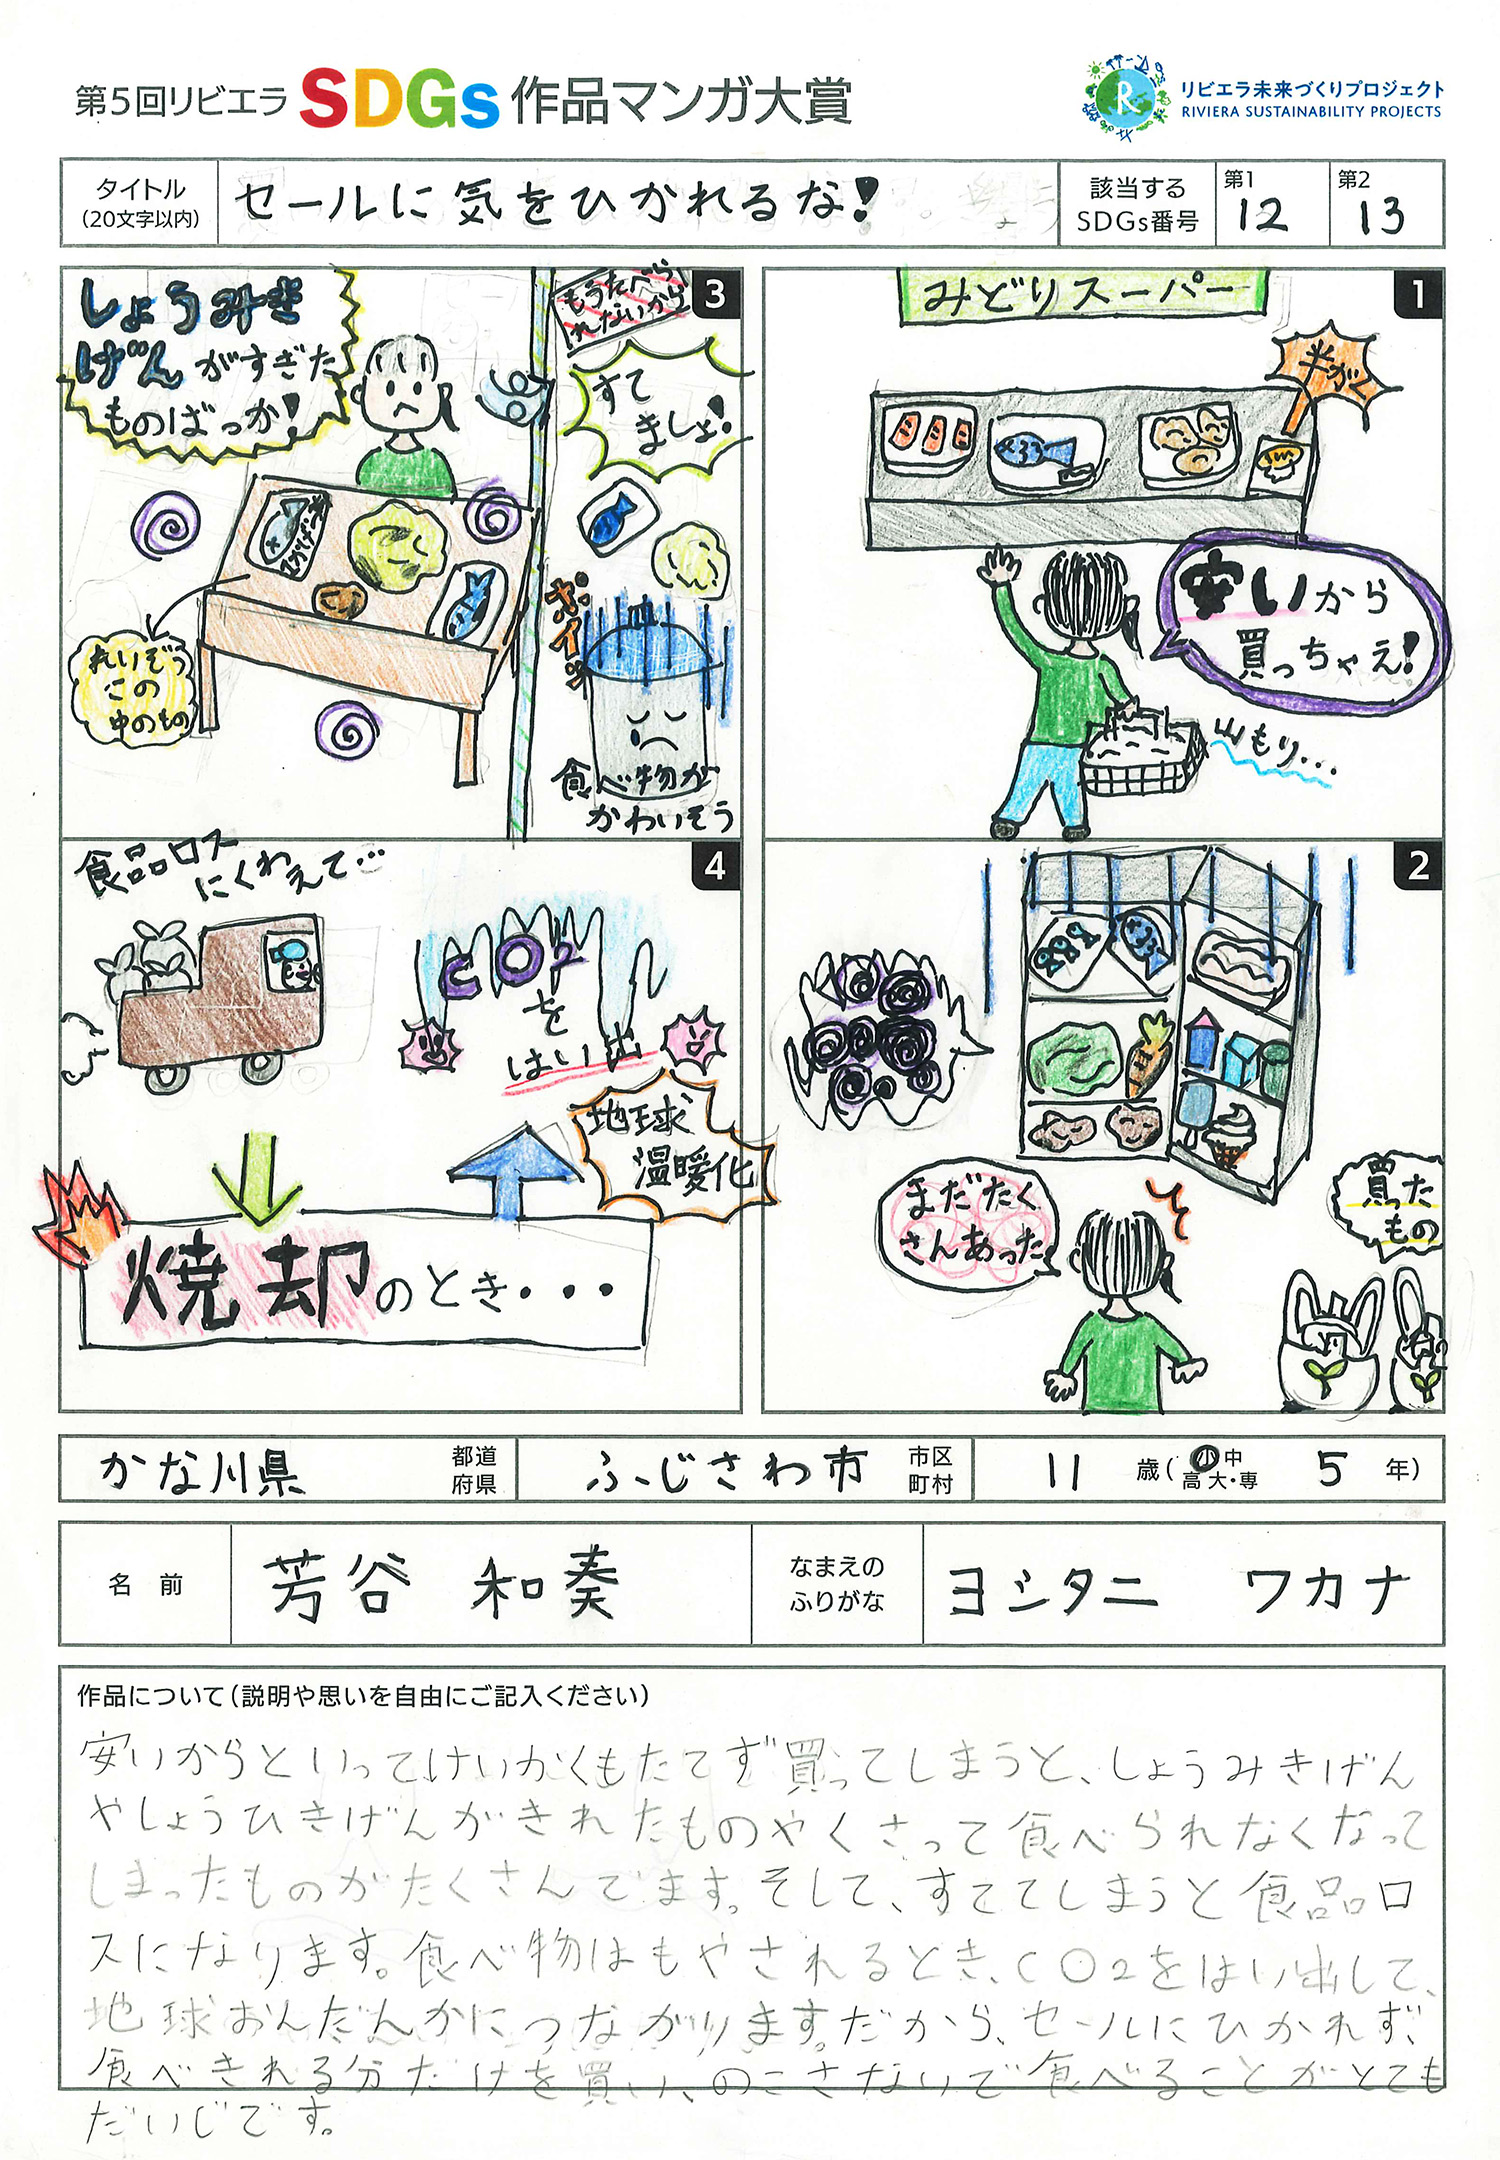 第5回リビエラ SDGs 作品マンガ大賞
リビエラ未来づくりプロジェクト
RIVIERA SUSTAINABILITY PROJECTS
タイトル
(20文字以内)
セールに気をひかれるな!
該当する
SDGs番号
第1
12
第2
13
1
みどりスーパー
半がく
安いから
買っちゃえ!
山もり…
2
まだたく
さんあった
買った
もの
3
しょうみき
げんがすぎた
ものばっか!
もうたべら
れないから
すて
ましょ!
れいぞう
この
中のもの
ポイッ
食べ物が
かわいそう
4
食品ロス
にくわえて…
CO2
を
はい出
地球
温暖化
焼却のとき・・・
かな川県
都道
府県
ふじさわ市
市区
町村
11
歳(
小・中
高・大・専
5
年)
名 前
芳谷 和奏
なまえの
ふりがな
ヨシタニ ワカナ
作品について(説明や思いを自由にご記入ください)
安いからといってけいかくもたてず買ってしまうと、しょうみきげん
やしょうひきげんがきれたものやくさって食べられなくなって
しまったものがたくさんでます。そして、すててしまうと食品ロ
スになります。食べ物はもやされるとき、CO2をはい出して、
地球おんだんかにつながります。だから、セールにひかれず、
食べきれる分だけを買い、のこさないで食べることがとても
だいじです。